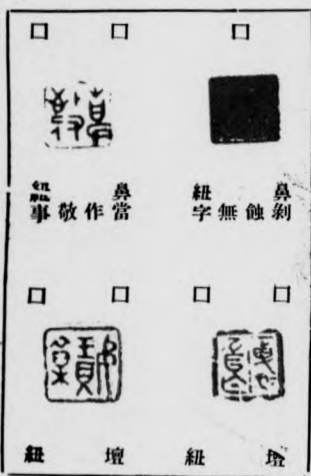 □
鼻紐
剝蝕無字
□□
鼻紐
當作敬事
□□
壇紐
□□
壇紐